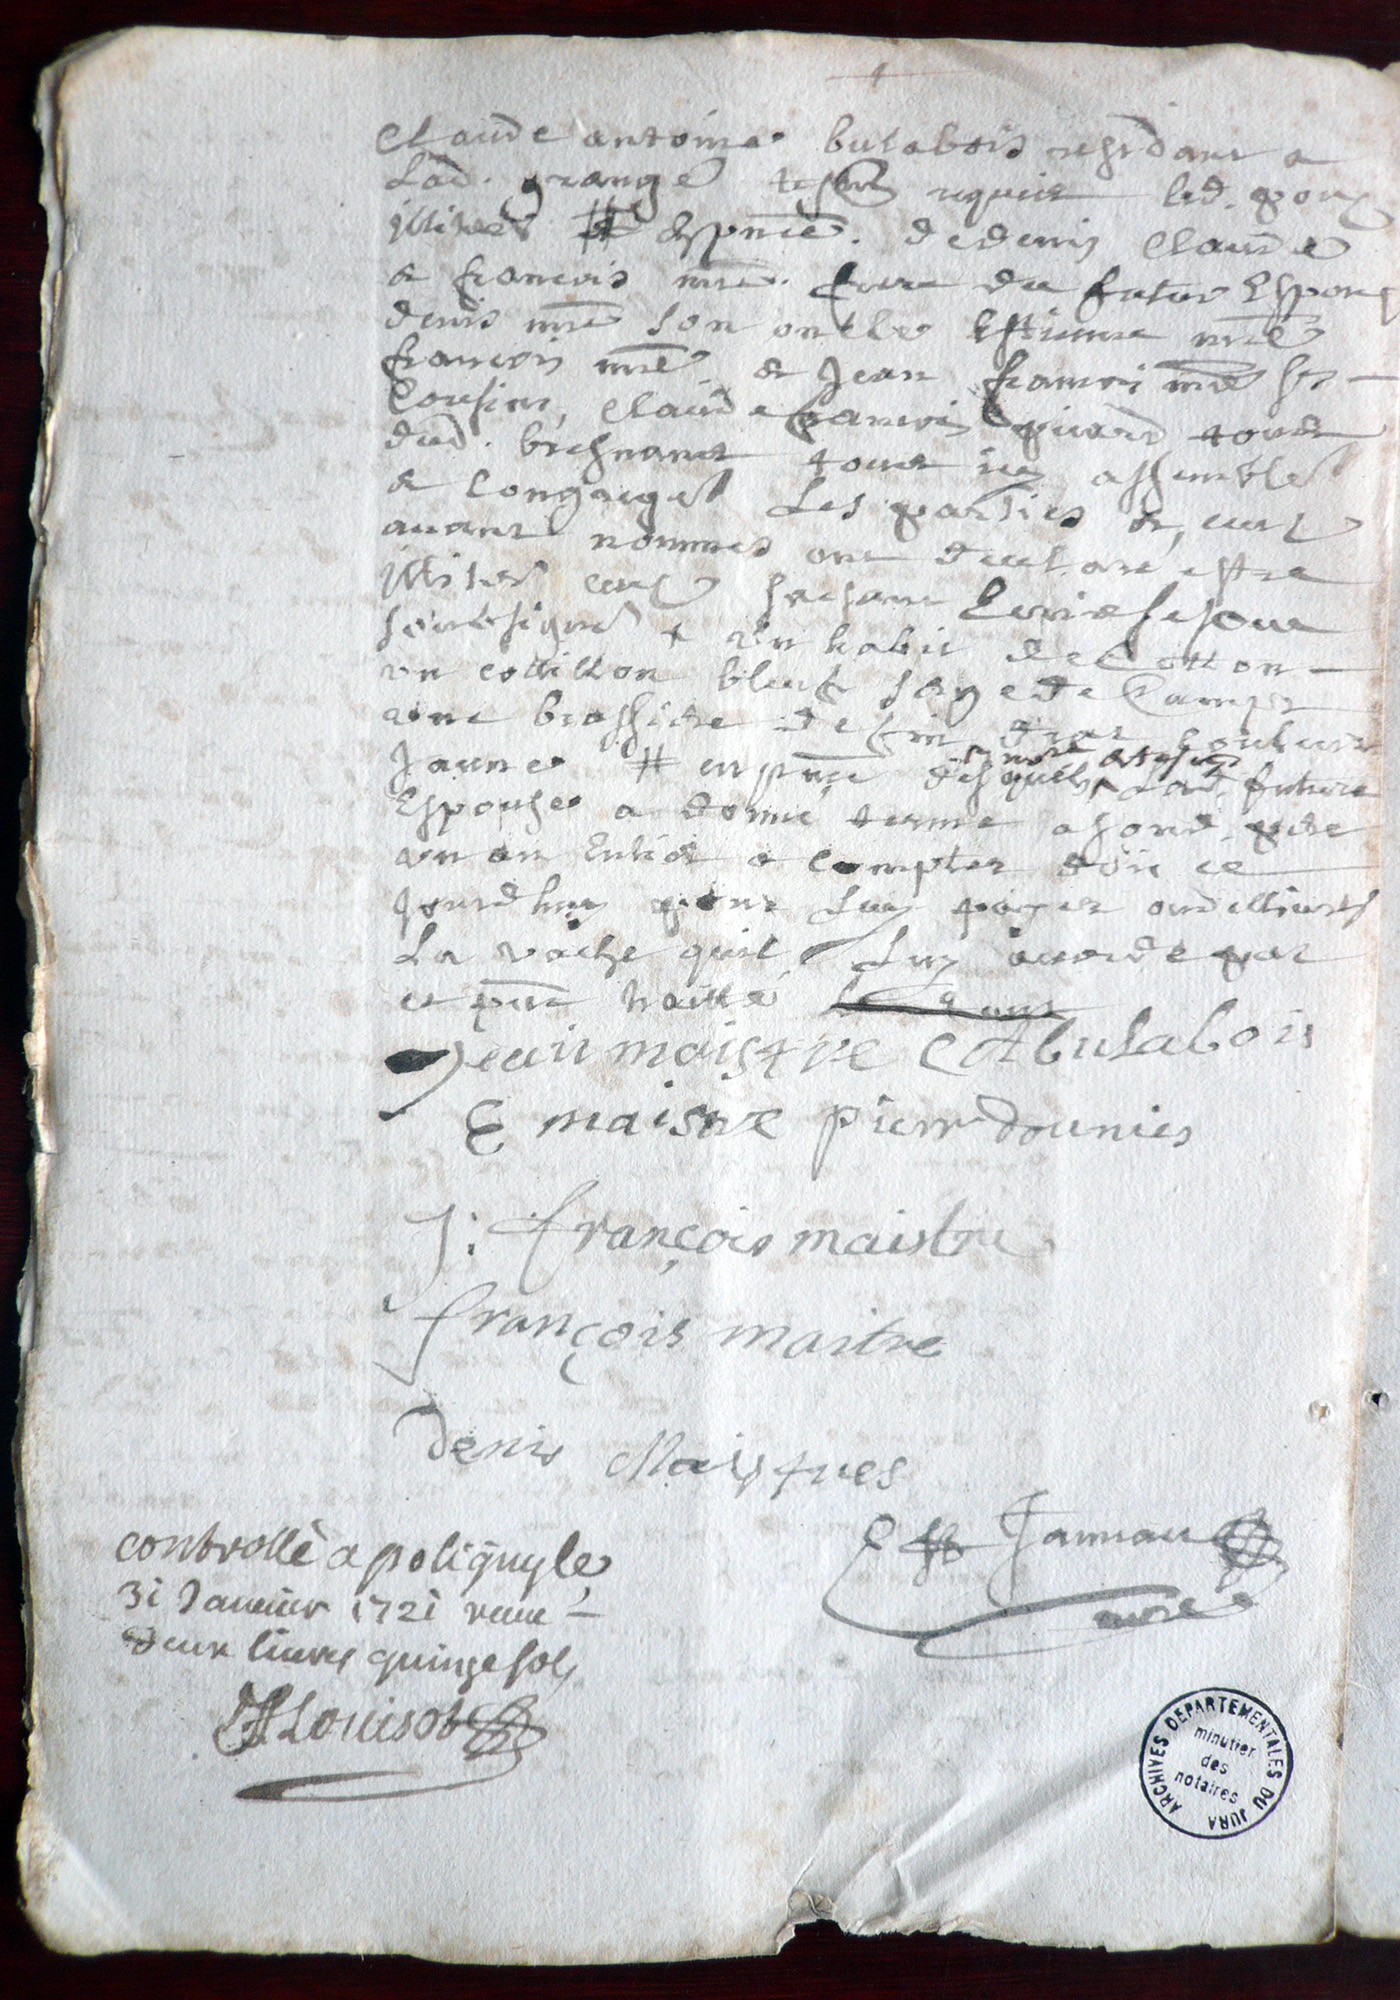 Claude antoine bulabois residant a
Lad. grange tesm requis led. pour
illiteré # Espnce. de denis Claude
& francois mre. frere du futur Espoux
denis mre son oncle Estienne mre
francois mre & Jean francois mre ses
Cousins, Claude francois guiard tous
dud. tous icy assemblé
& Les parties &, ceux
avant nommes ont declaré estre
illiteré ceux sachant Ecrire se sont
soubsigné + un habit de Cotton
un cotillon bleuf serge de
une brassiere de fin drap couleur
Jaune # en pnce desquels Lad. future
Espouse a donné terme a sond. pere
un an Entier a compter doiz ce
Jourdhuy pour Luy payer ou dellivrer
La vache quil Luy accorde par
ce pnt traitté
Jean maistre C A bulabois
E maistre pierr dounies
J: françois maistre
françois maitre
denis Maistres
Jannau
nore
controllé a poligny le
31 Janvier 1721 receu
deux livres quinze sols
Louisot
ARCHIVES DEPARTEMENTALES DU JURA
minutier
des
notaires